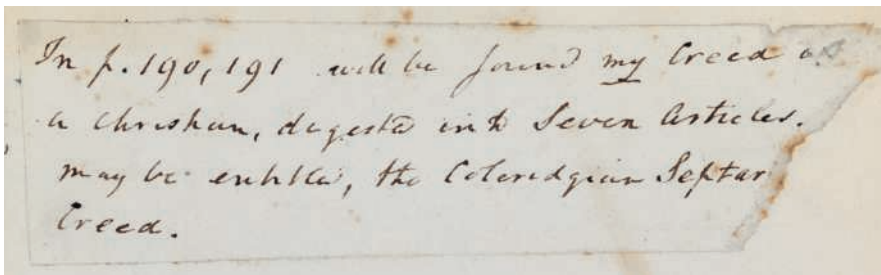 In p. 190, 191 will be found my Creed as
a Christian, digested into Seven Articles.
may be entitled, the Coleridgian Septar
Creed.